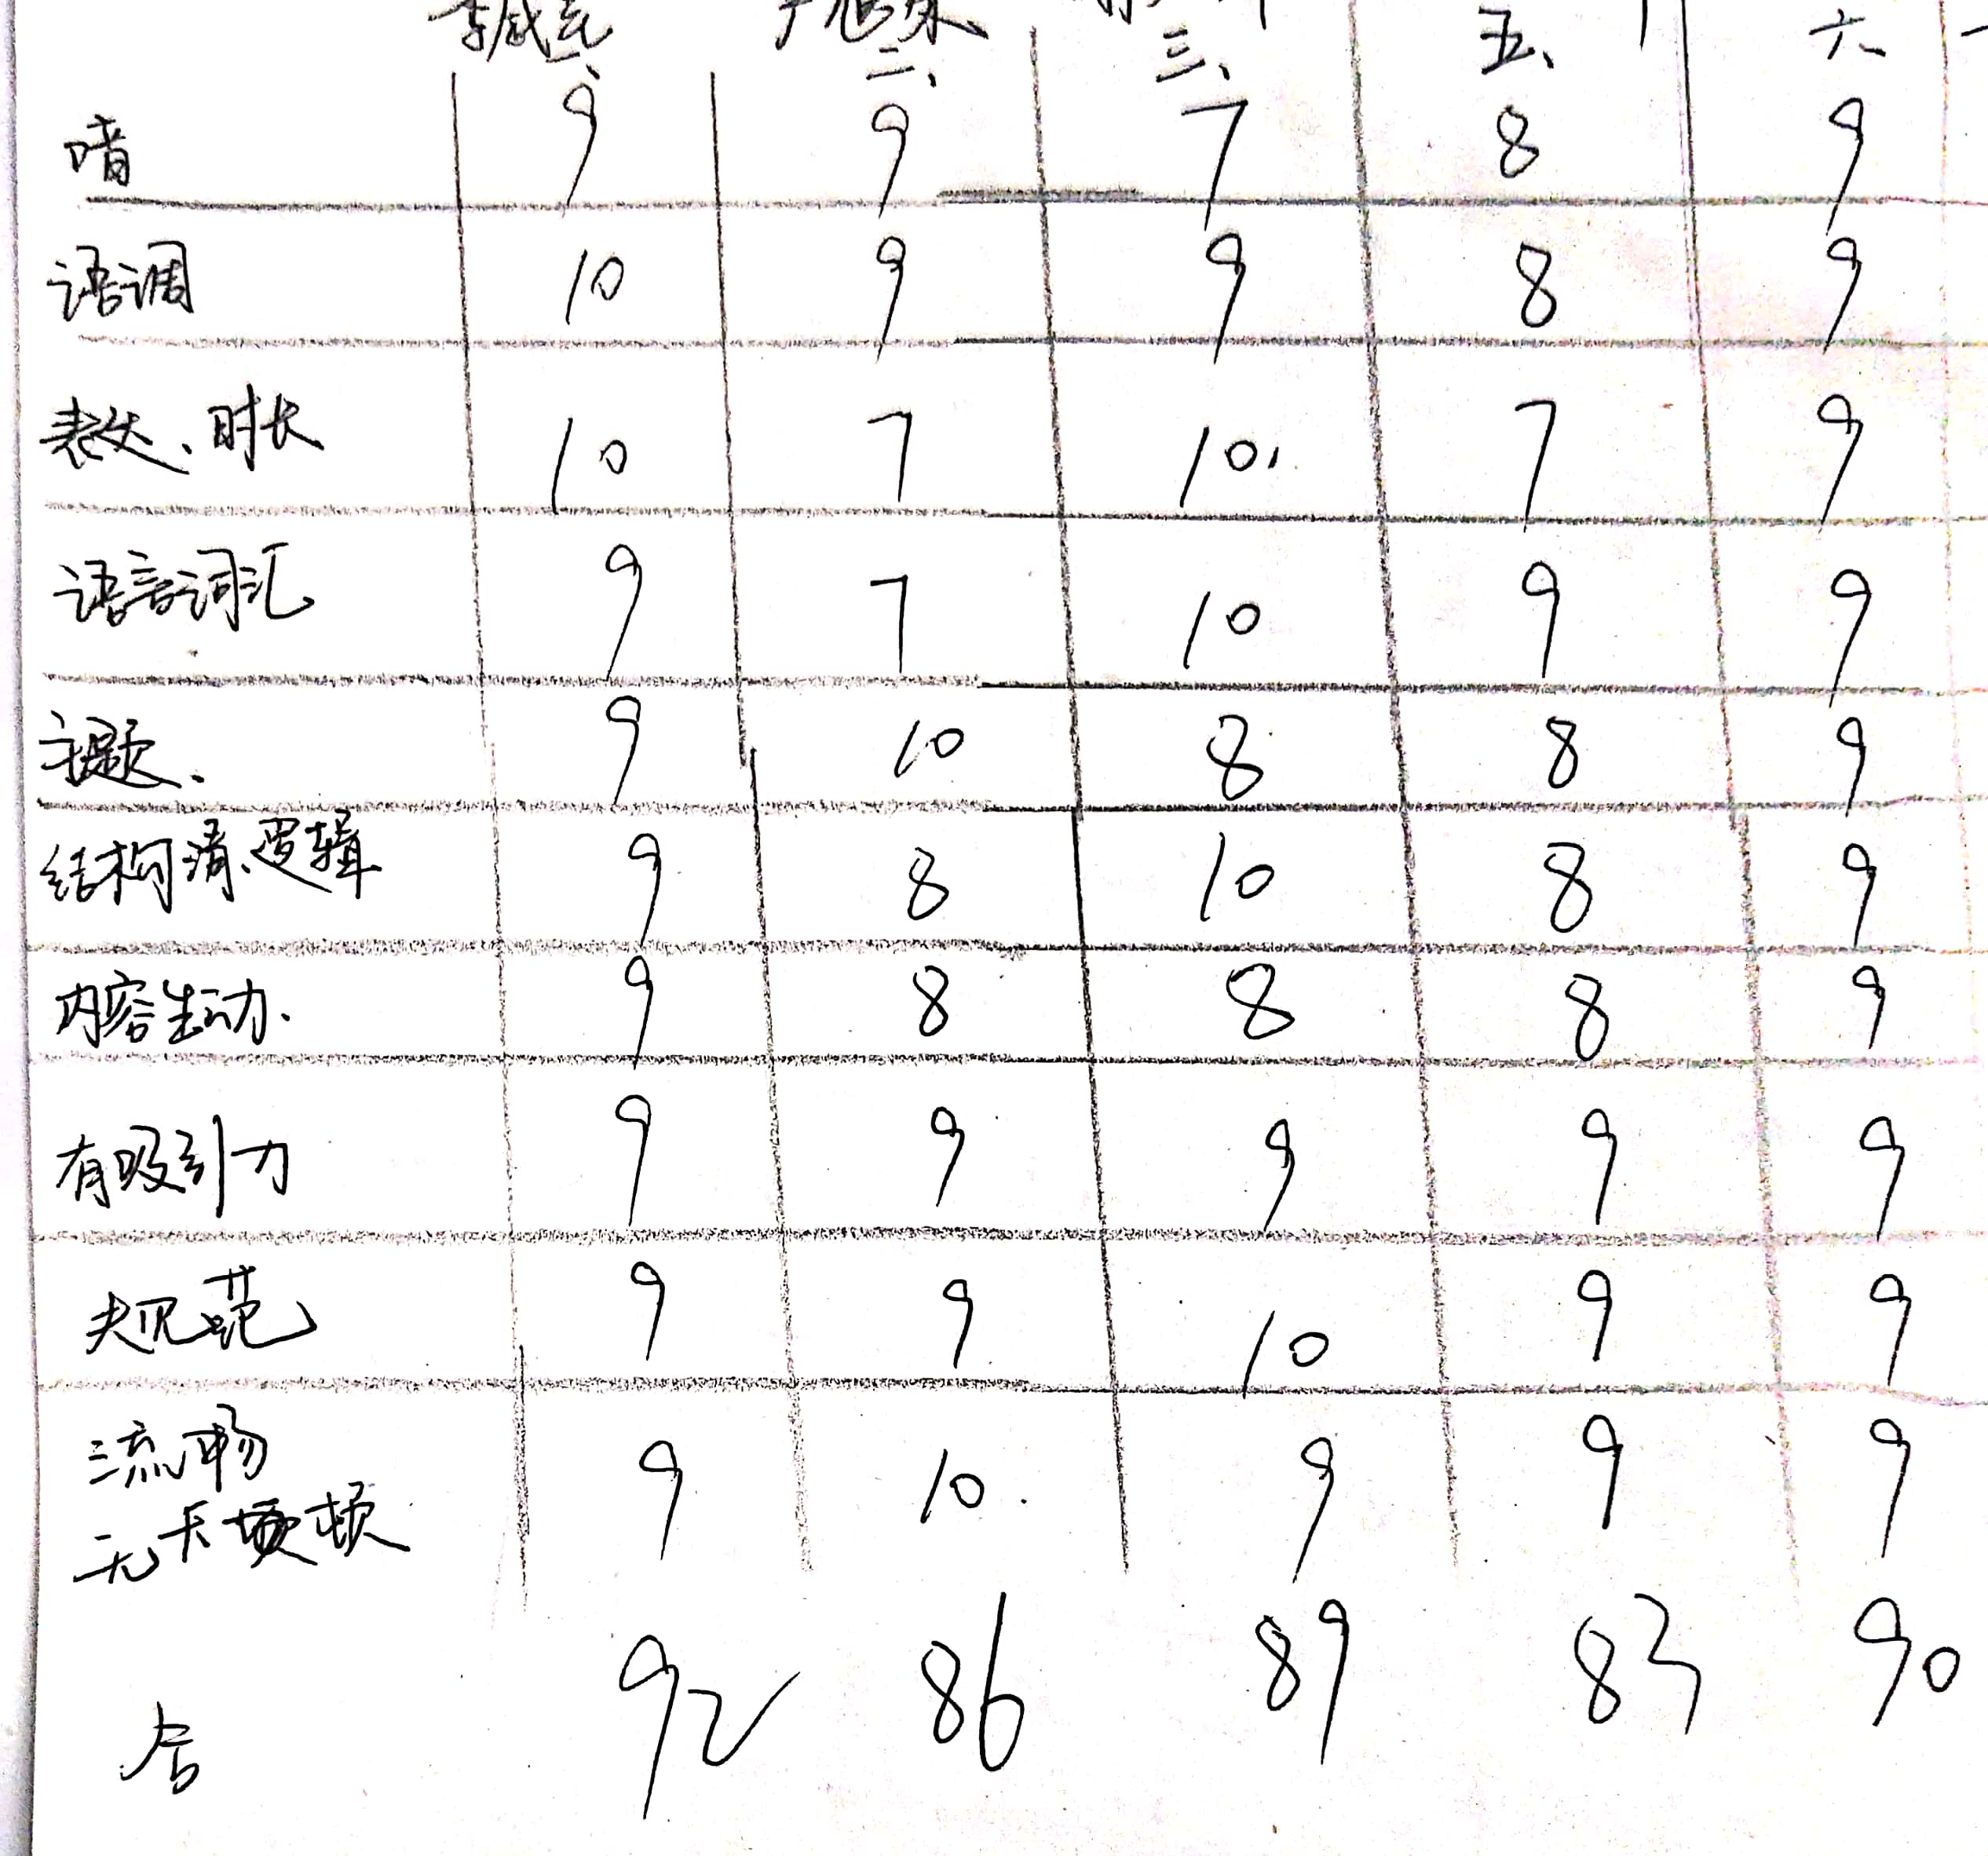 二、 三、 五、 六、
喑 9 9 7 8 9
语调 10 9 9 8 9
表达、时长 10 7 10 7 9
语音词汇 9 7 10 9 9
主题、 9 10 8 8 9
结构清、逻辑 9 8 10 8 9
内容生动. 9 8 8 8 9
有吸引力 9 9 9 9 9
规范 9 9 10 9 9
流畅 9 10. 9 9 9
无卡顿
92 86 89 83 90